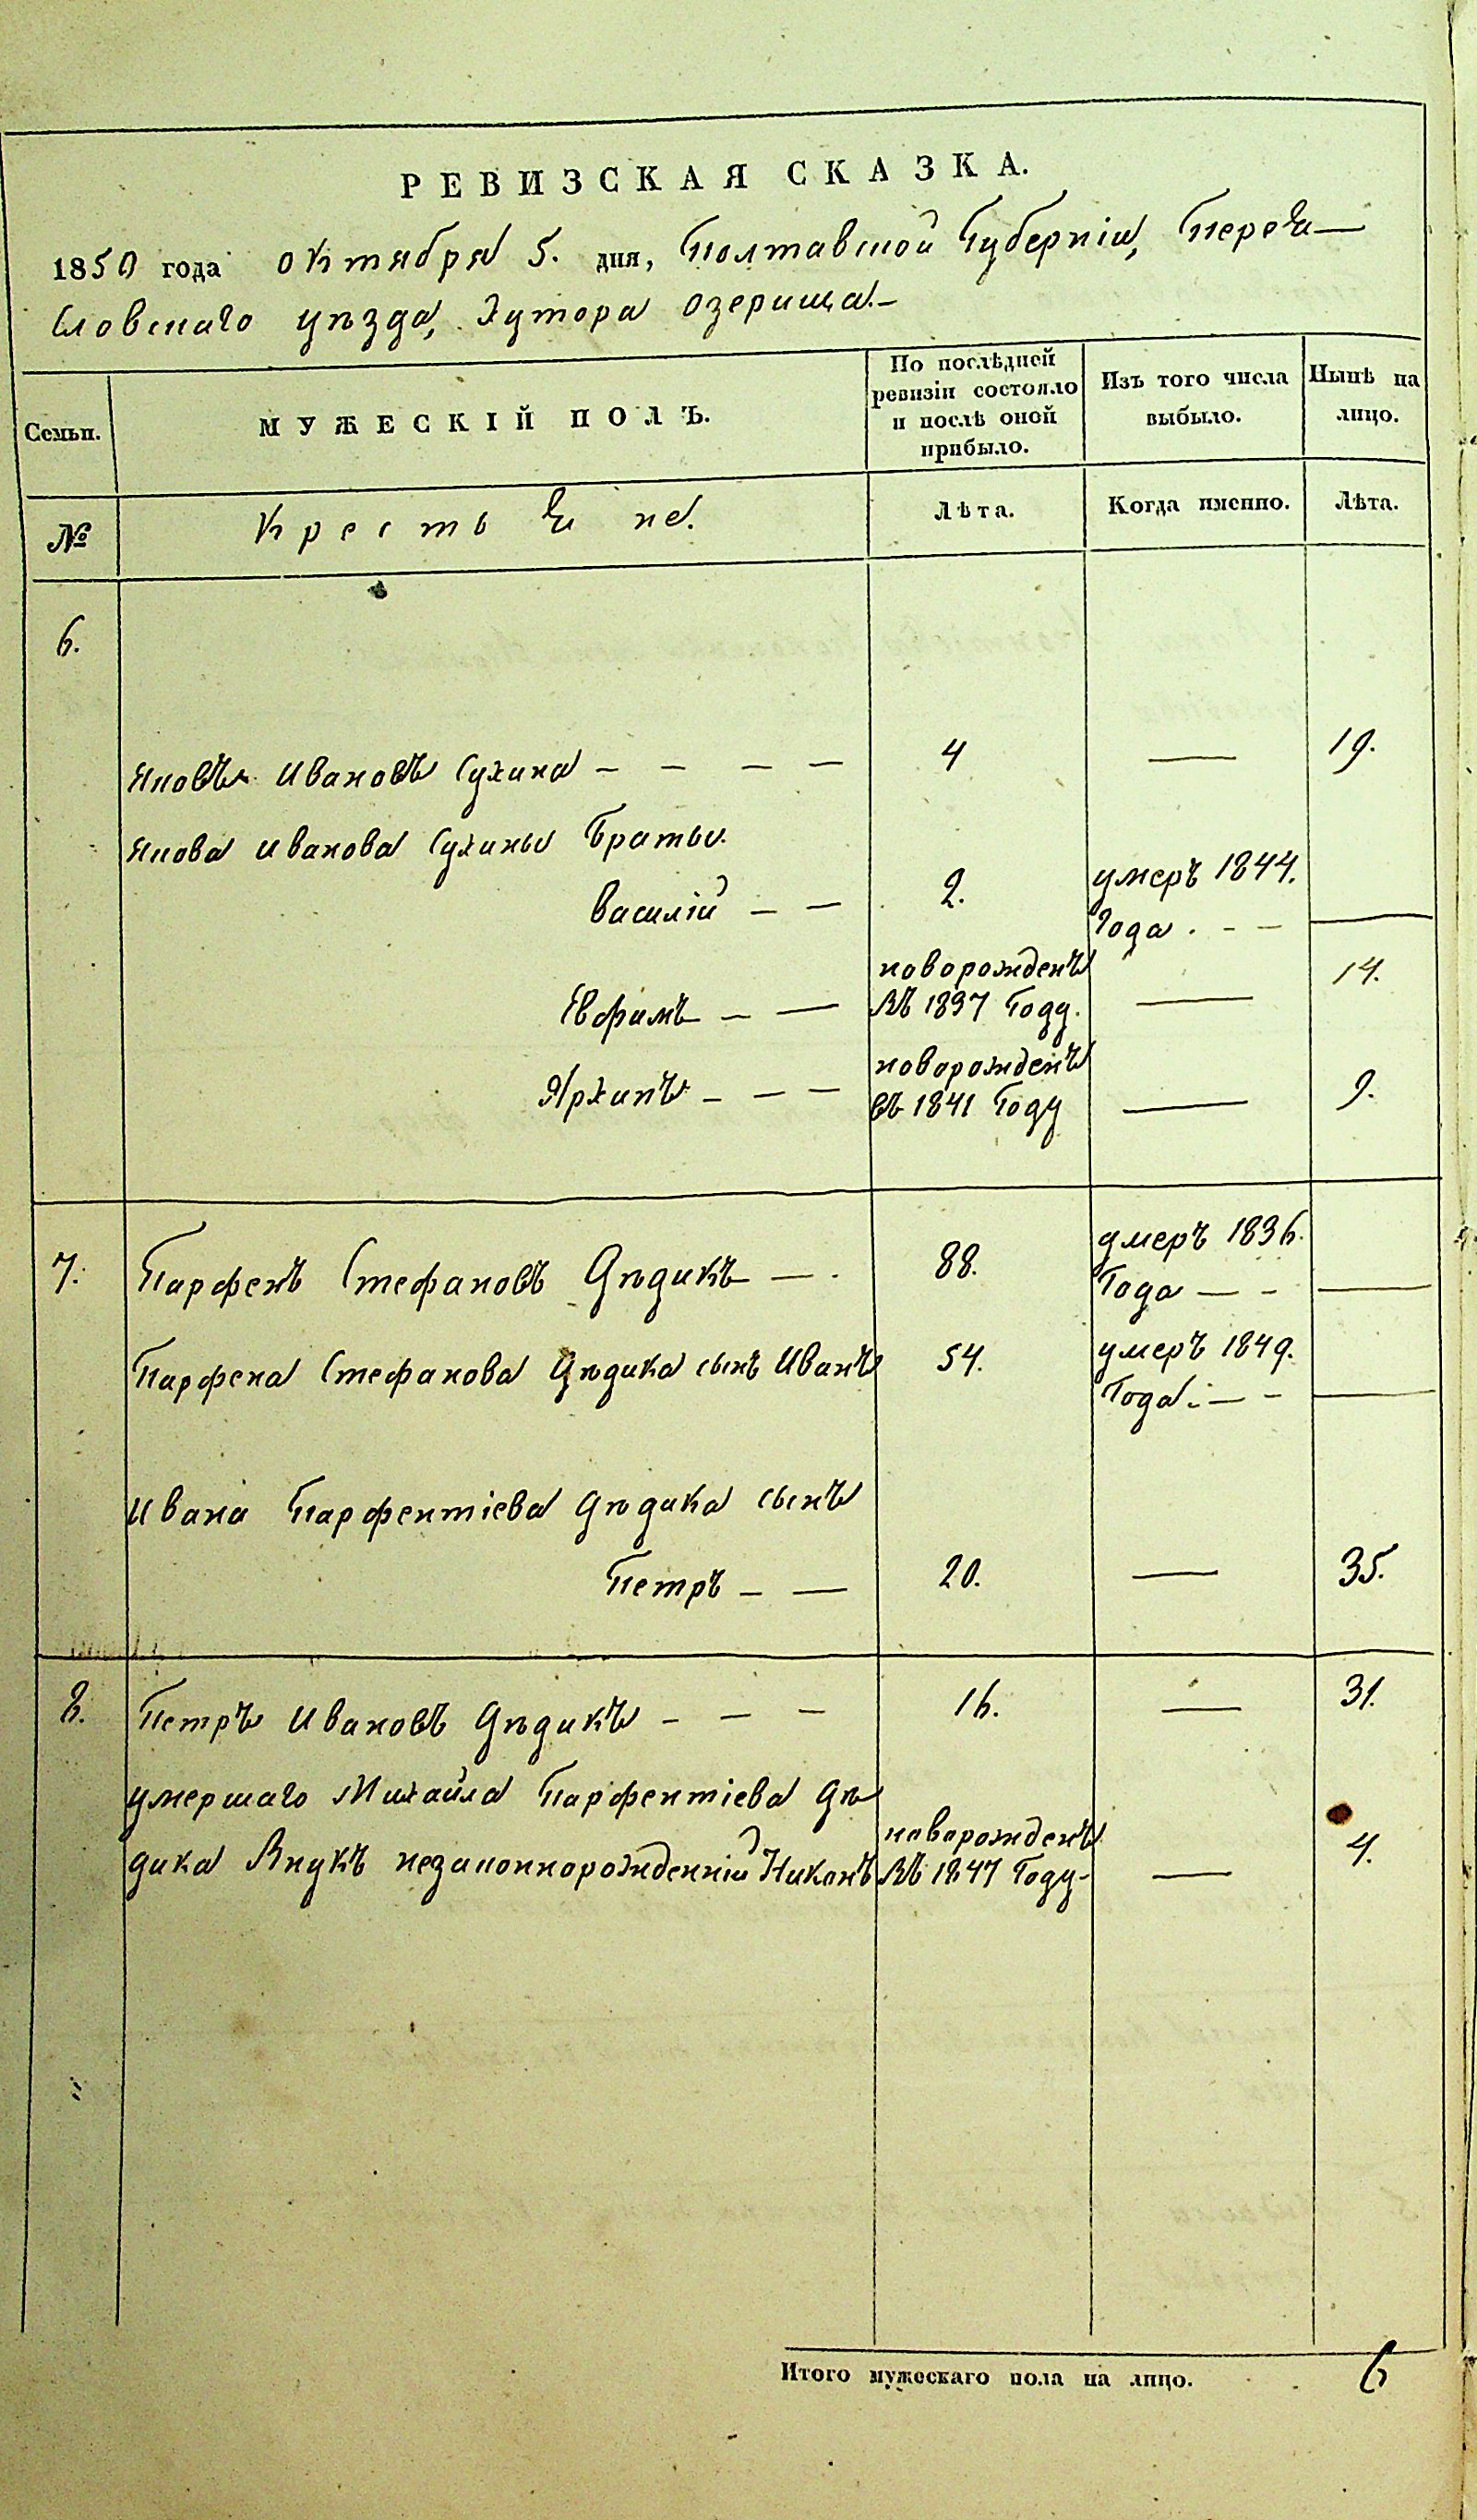 РЕВИЗСКАЯ СКАЗКА.
1850 года октября 5. дня, Полтавской Губерніи, Перея—
словскаго уѣзда, Хутора Озерища.—
Семьи.
МУЖЕСКІЙ ПОЛЪ.
По послѣдней ревизіи состояло и послѣ оной прибыло.
Изъ того числа выбыло.
Нынѣ на лицо.
№
Крестьяне.
Лѣта.
Когда именно.
Лѣта.
6.
Яковъ Ивановъ Сухина — — — — 4 — 19.
Якова Иванова Сухины Братьи.
Василій — — 2. умеръ 1844.
Года . - - —
Евфимъ — — новорожденъ
въ 1837 Году. — 14.
Архипъ — — — новорожденъ
въ 1841 Году — 9.
7. Парфенъ Стефановъ Дѣдикъ — . 88. умеръ 1836.
Года — - —
Парфена Стефанова Дѣдика сынъ Иванъ 54. умеръ 1849.
Года. — - —
Ивана Парфентіева Дѣдика сынъ
Петръ — — 20. — 35.
8. Петръ Ивановъ Дѣдикъ — — — 16. — 31.
умершаго Михайла Парфентіева Дѣ
дика Внукъ незаконнорожденній Никонъ новорожденъ
въ 1847 Году — 4.
Итого мужескаго пола на лицо. 6